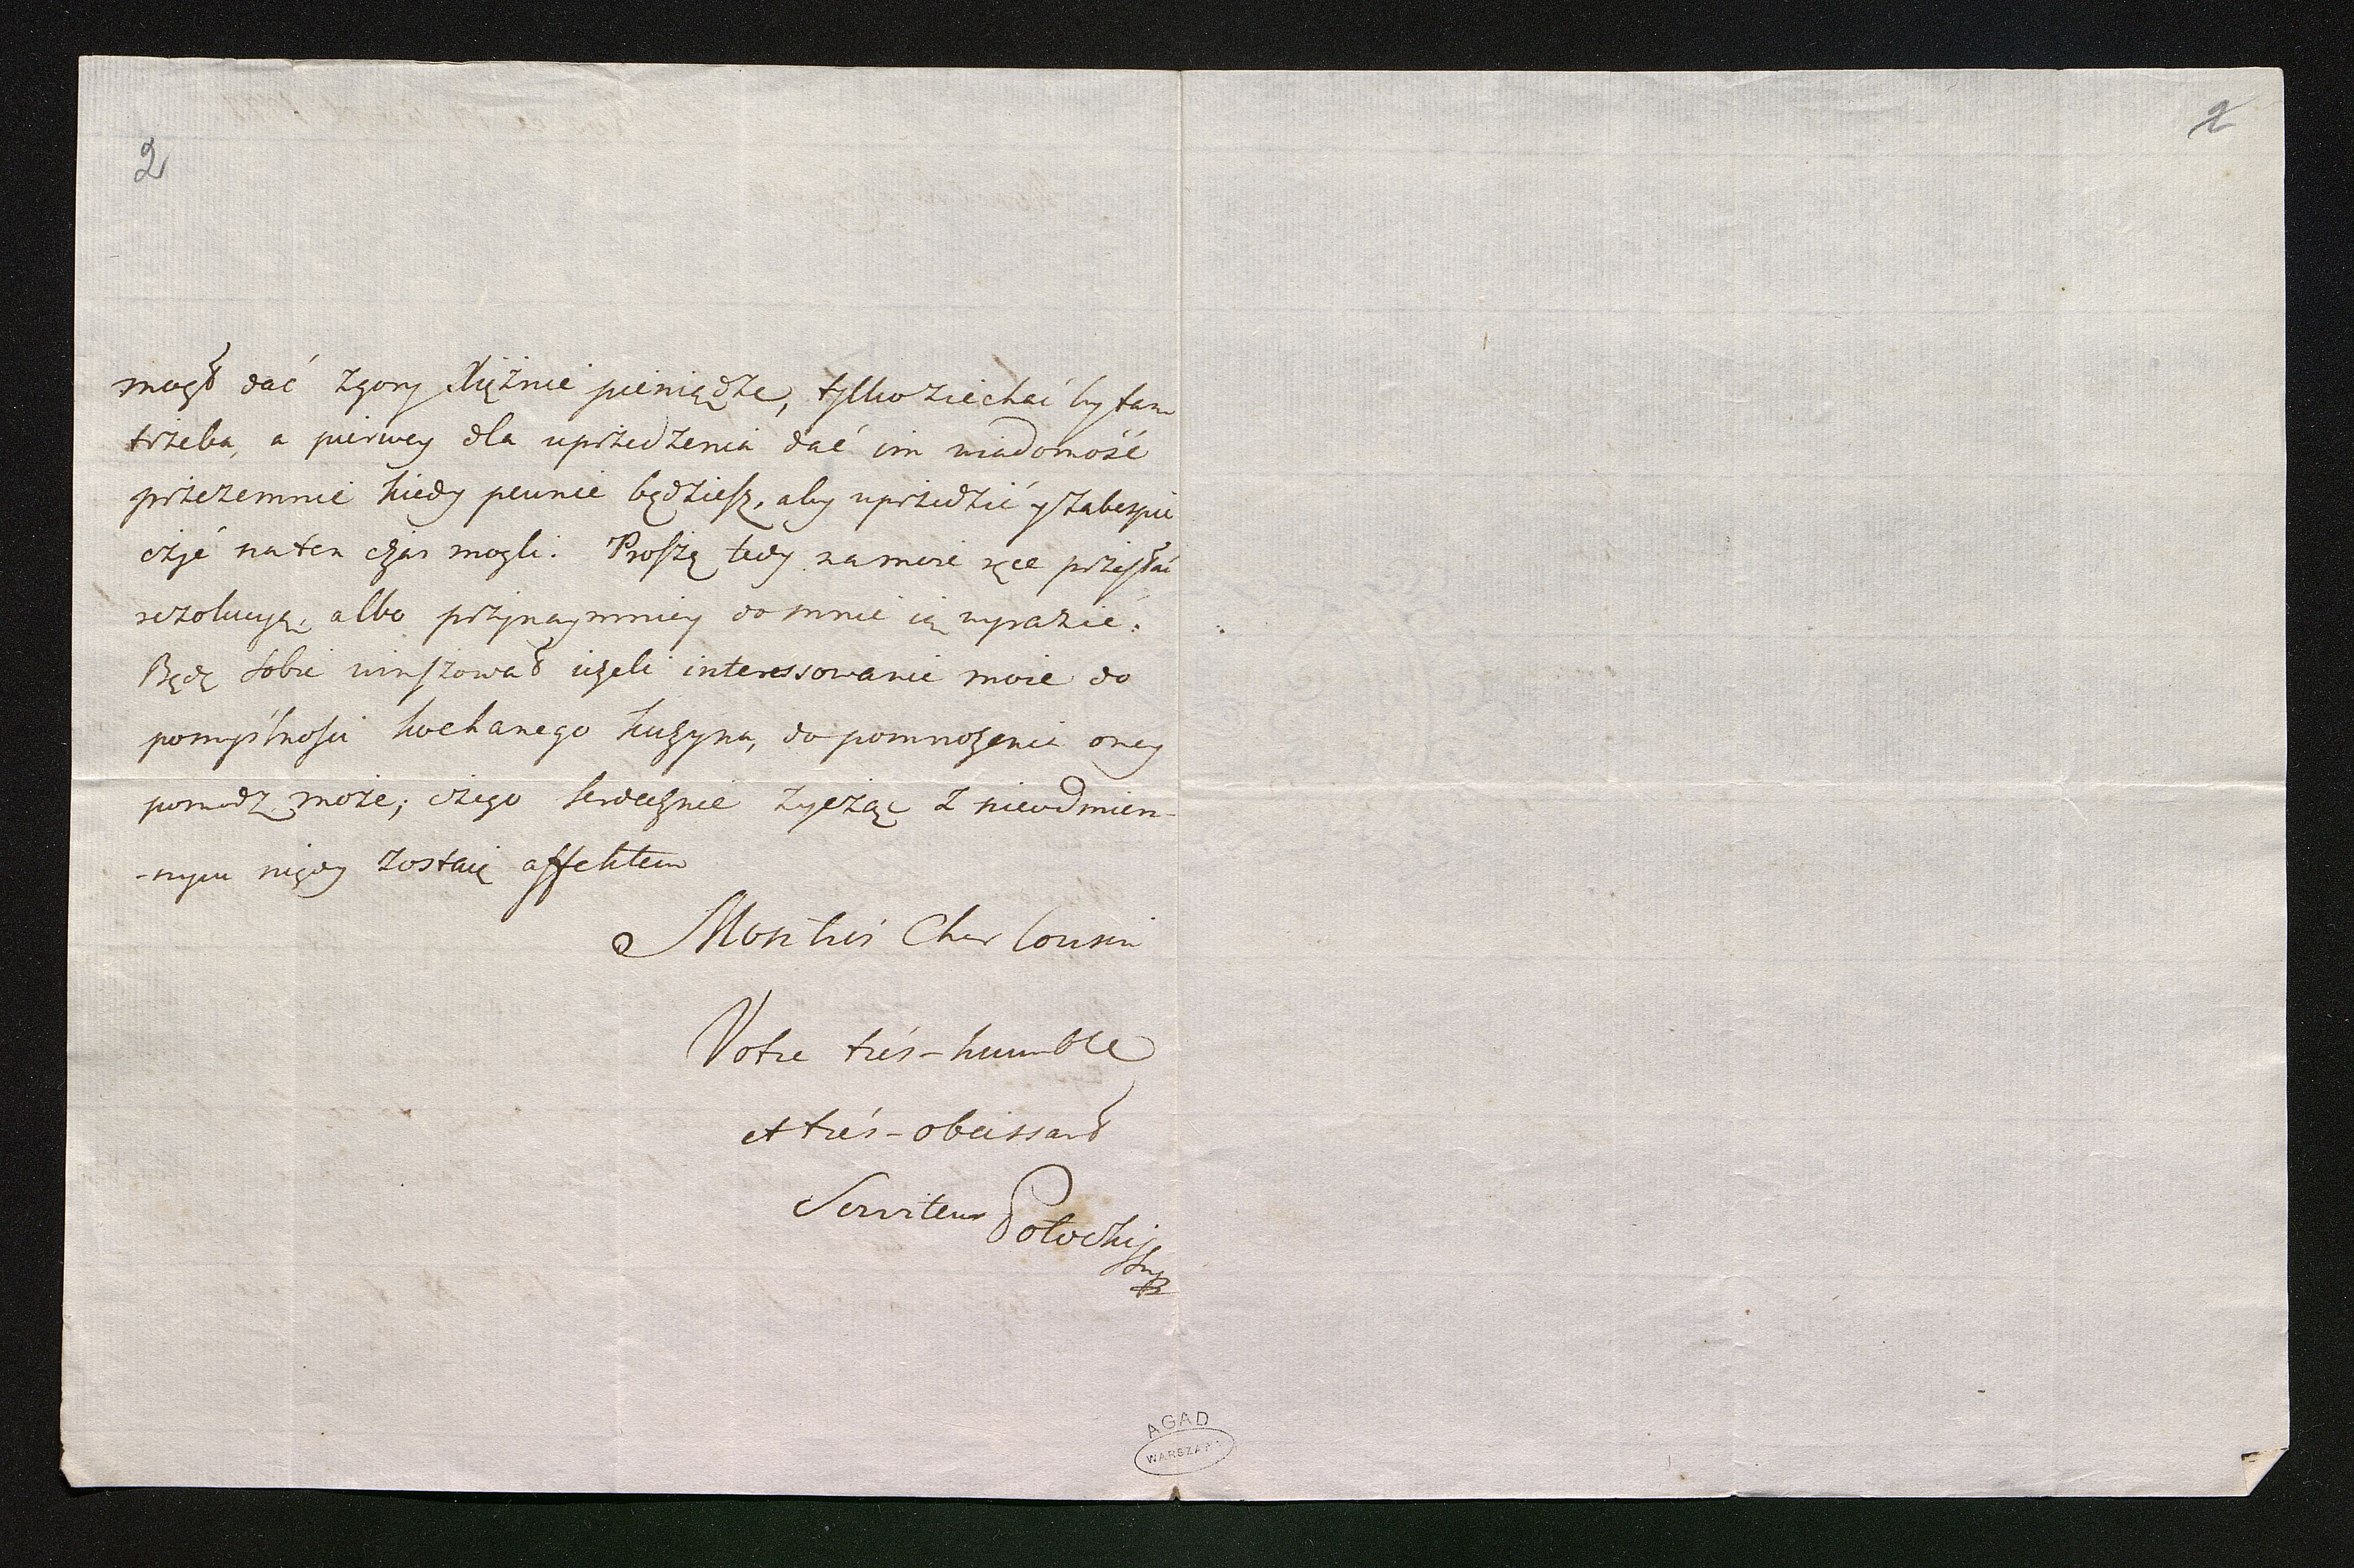 2
2
mogł dać zgory Xiężnie pieniądze, tylko ziechać by tam
trzeba, a pierwey dla uprzedzenia dać im wiadomość
przezemnie kiedy pewnie będziesz, aby uprzedzić y zabespie
czyć na ten czas mogli. Proszę tedy na moie ręce przesłać
rezolucyą, albo przynaymniey do mnie ią wyrazić.
Będę sobie winszował ieżeli interessowanie moie do
pomyślności kochanego kuzyna, do pomnożenia oney
pomodz może; czego serdecznie życząc z nieodmien-
-nym nigdy zostaię affektem
Mon trés Cher Cousin
Votre trés-humble
et trés-obeissant
Serviteur Potocki
AGAD
WARSZAWA